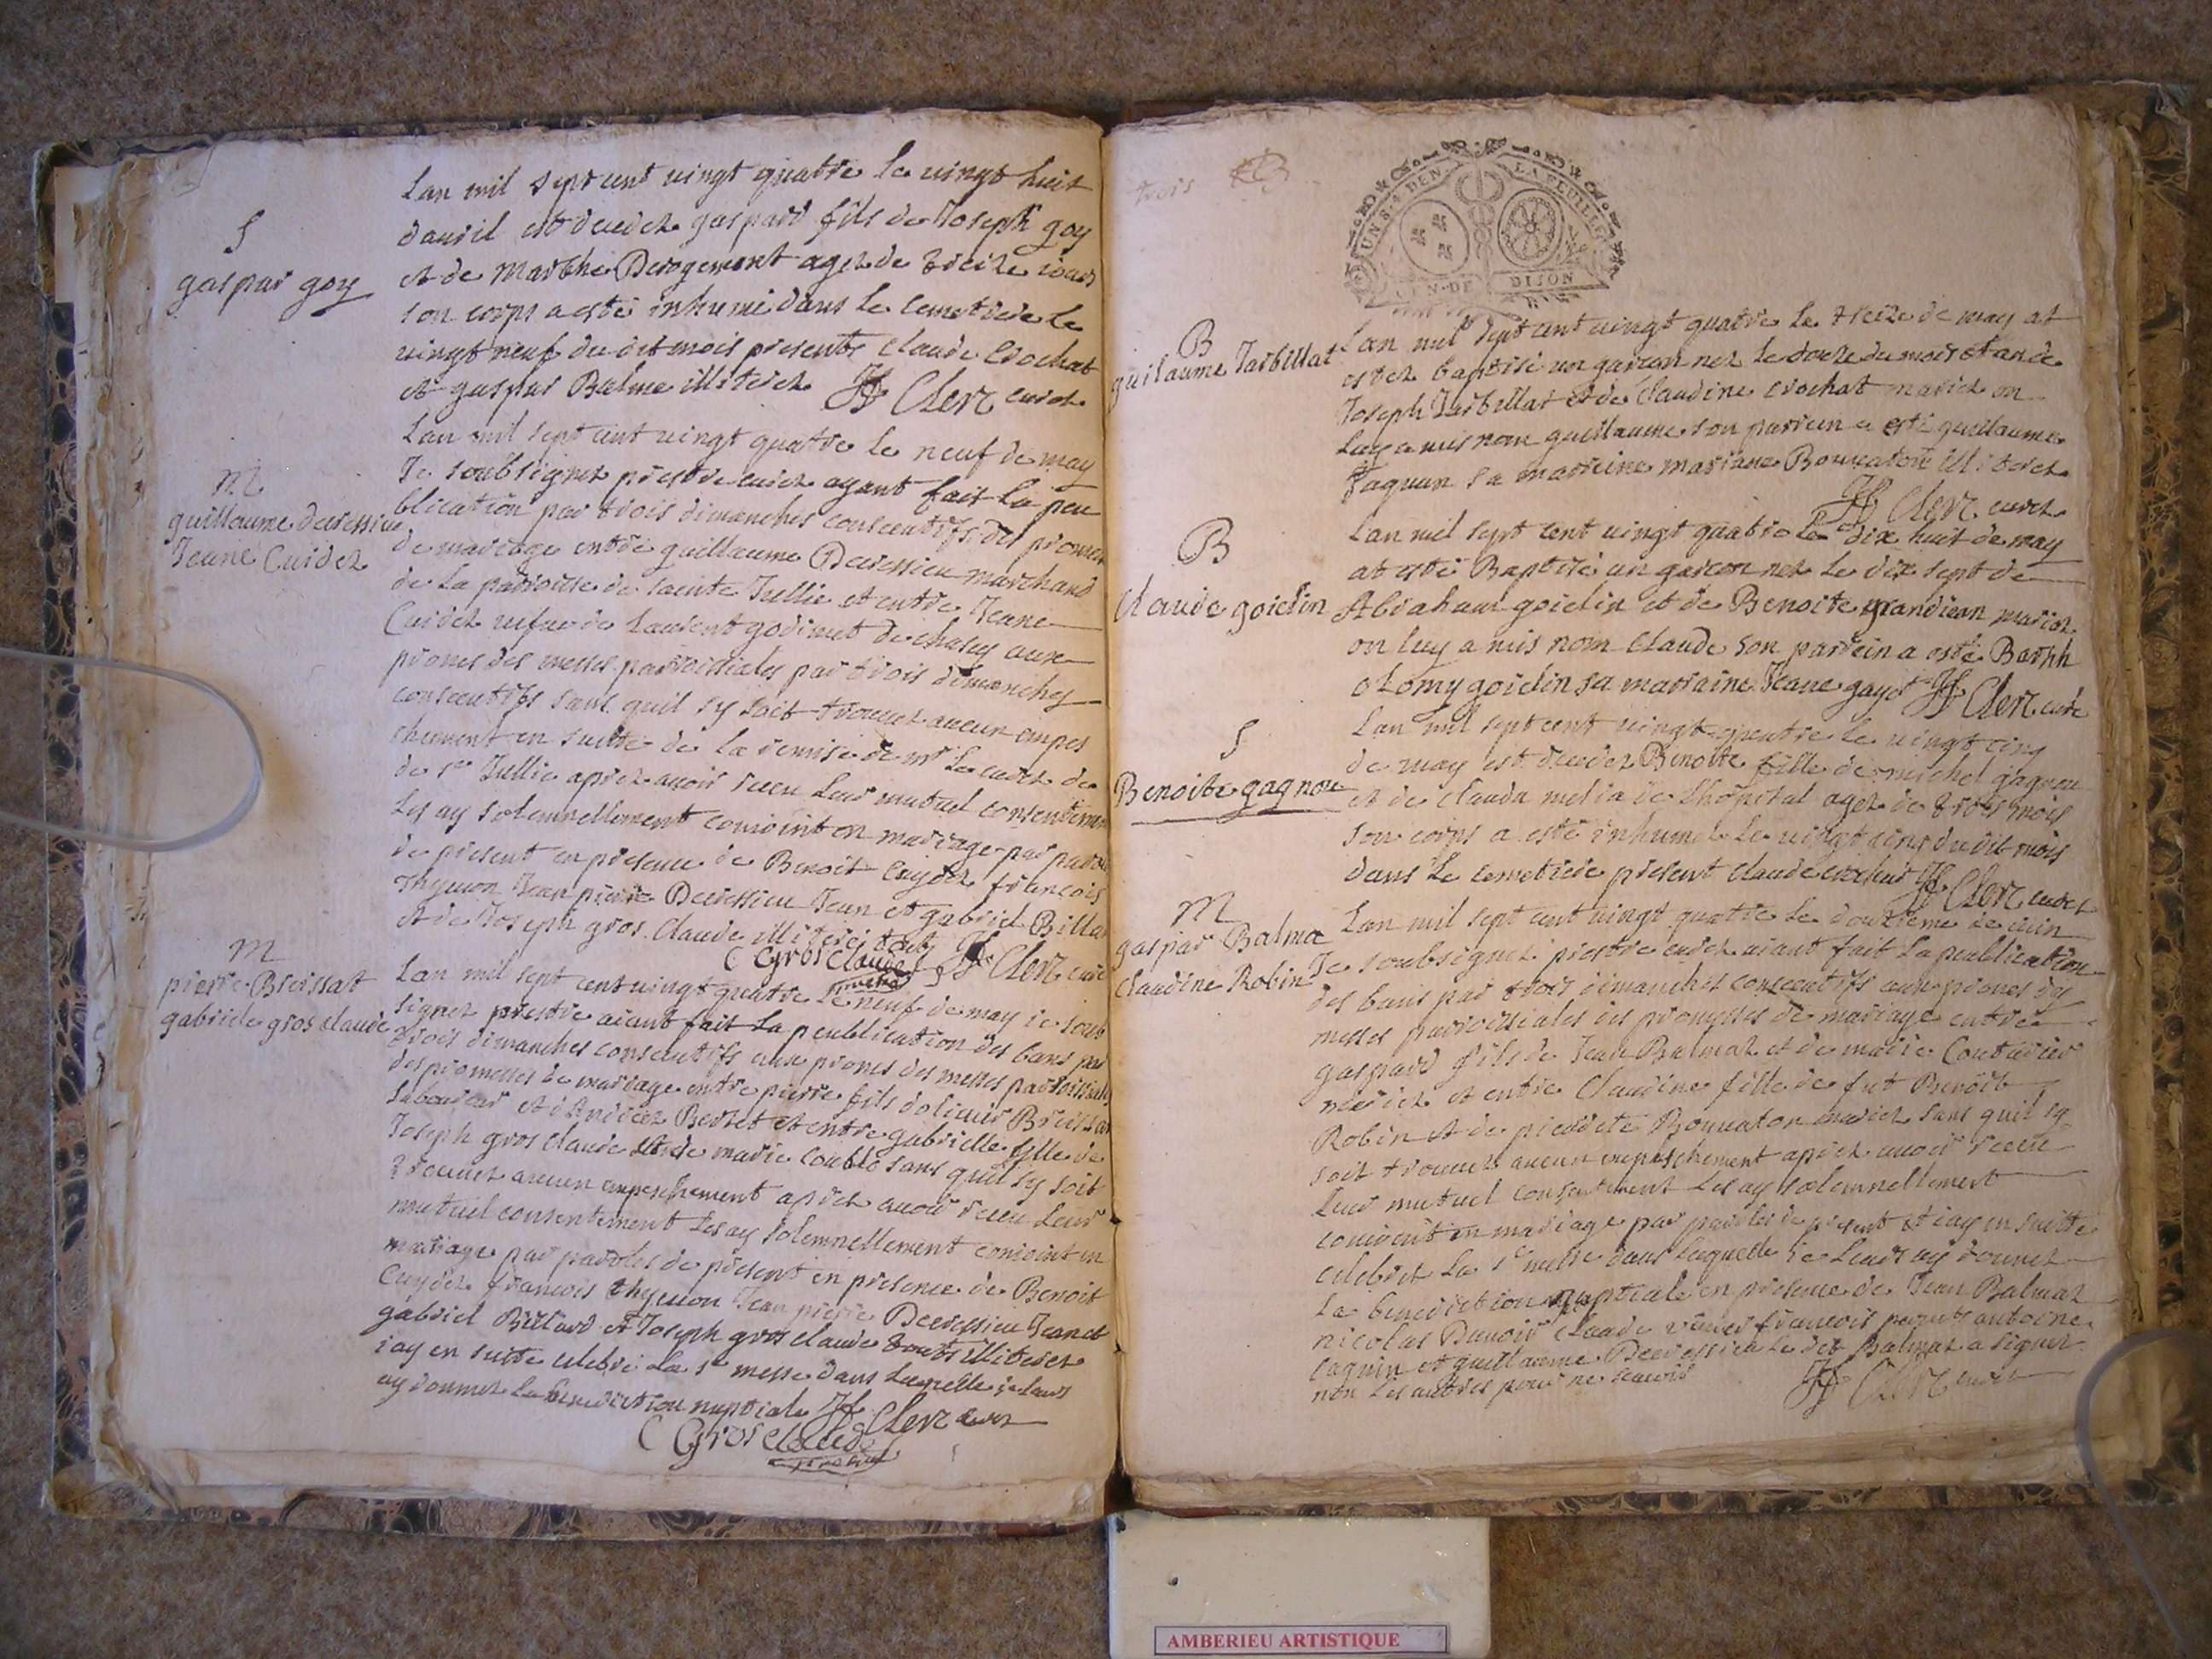 Lan mil sept cent vingt quatre le vingt huit
davril est decedez gaspard fils de Joseph goy
et de Marthe Derogemont agez de treize iours
son corps a esté inhumé dans le cemetiere le
vingt neuf du dit mois presents Claude Crochat
et gaspar Balme illiterez JF Clerz curez
S
gaspar goy
Lan mil sept cent vingt quatre le neuf de may
Je soubsignez prestre curez ayant fait la peu
blication par trois dimanches consecutifs des promess
de mariage entre guillaume Decressieu marchand
de la parroisse de sainte Jullie et entre Jeane
Cuidez vefue de Laurent godimet de chasey aux
prones des messes parroissiales par trois dimanches
consecutifs sans quil sy soit trouuez aucun empes
chement en suitte de la remise de mr le curez de
de ste Jullie aprez auoir receu leur mutuel consentemen
les ay solemnellement conioint en mariage par parol
de present en presence de Benoit Cuydez francois
thymon Jean pierre Decressieu Jean et gabriel Billar
et de Joseph gros Claude illiterez JF Clerz curé
C Gros Claude
M
guillaume decressieu
Jeane Cuidez
Lan mil sept cent vingt quatre le neuf de may ie soub
signez prestre aiant fait la peublication des bans par
trois dimanches consecutifs aux prones des messes parroissiale
des promesses de mariage entre pierre fils dolivier Breissat
laboureur et dAndrée Berlet et entre gabrielle fille de
Joseph gros claude et de marie sans quil sy soit
trouuez aucun empeschement aprez auoir receu leur
mutuel consentement les ay solemnellement conioint en
mariage par paroles de present en presence de Benoit
Cuydez francois thymon Jean pierre Decressieu Jean et
gabriel Billard et Joseph gros claude touts illiterez
iay en suitte celebré la ste messe dans laquelle ie leurs
ay donnez la benediction nuptiale JF Clerz curez
C Gros Claude
M
pierre Breissat
gabriele gros claude
trois
UN S. 4 DEN. LA FEUILLE
GEN. DE DIJON
B
guilaume Jarbillat
Lan mil sept cent vingt quatre le treize de may at
estez baptisé un garcon nez le douze du mois
Joseph Jarbillat et de Claudine Crochat mariez on
luy a mis nom guillaume son parrein a esté guillaume
Jaquan sa marreine mariane Bonnaton illiterez
JF Clerz curez
B
Claude goiclin
Lan mil sept cent vingt quatre le dix huit de may
at esté Baptisé un garcon nez le dix sept de
Abraham goiclin et de Benoite grandiean mariez
on luy a mis nom Claude son parrein a esté Barth
olomy goiclin sa marraine Jeane gayet JF Clerz curé
S
Benoite gagnou
Lan mil sept cent vingt quatre le vingt cinq
de may est decedez Benoite fille de michel gagnou
et de Clauda de Lhopital agez de trois mois
son corps a esté inhumez le vingt dudit mois
dans le cemetiere present Claude crochat JF Clerz curez
M
gaspar Balma
Claudine Robin
Lan mil sept cent vingt quatre le douzieme de iuin
Je soubsignez prestre curez aiant fait la peublication
des bans par trois dimanches consecutifs aux prones des
messes parroissiales des promesses de mariage entre
gaspard fils de Jean Balmaz et de marie Couturier
mariez et entre Claudine fille de fut Benoit
Robin et de pierrete Bonnaton mariez sans quil sy
soit trouuez aucun empeschement aprez auoir receu
leur mutuel consentement les ay solemnellement
conioint en mariage par paroles de present et iay en suitte
celebrez la ste messe dans laquelle ie leurs ay donnez
la benediction nuptiale en presence de Jean Balmaz
nicolas Claude francois antoine
et guillaume Decressieu le dit Balmaz a signez
non les autres pour ne scauoir JF Clerz curez
AMBERIEU ARTISTIQUE